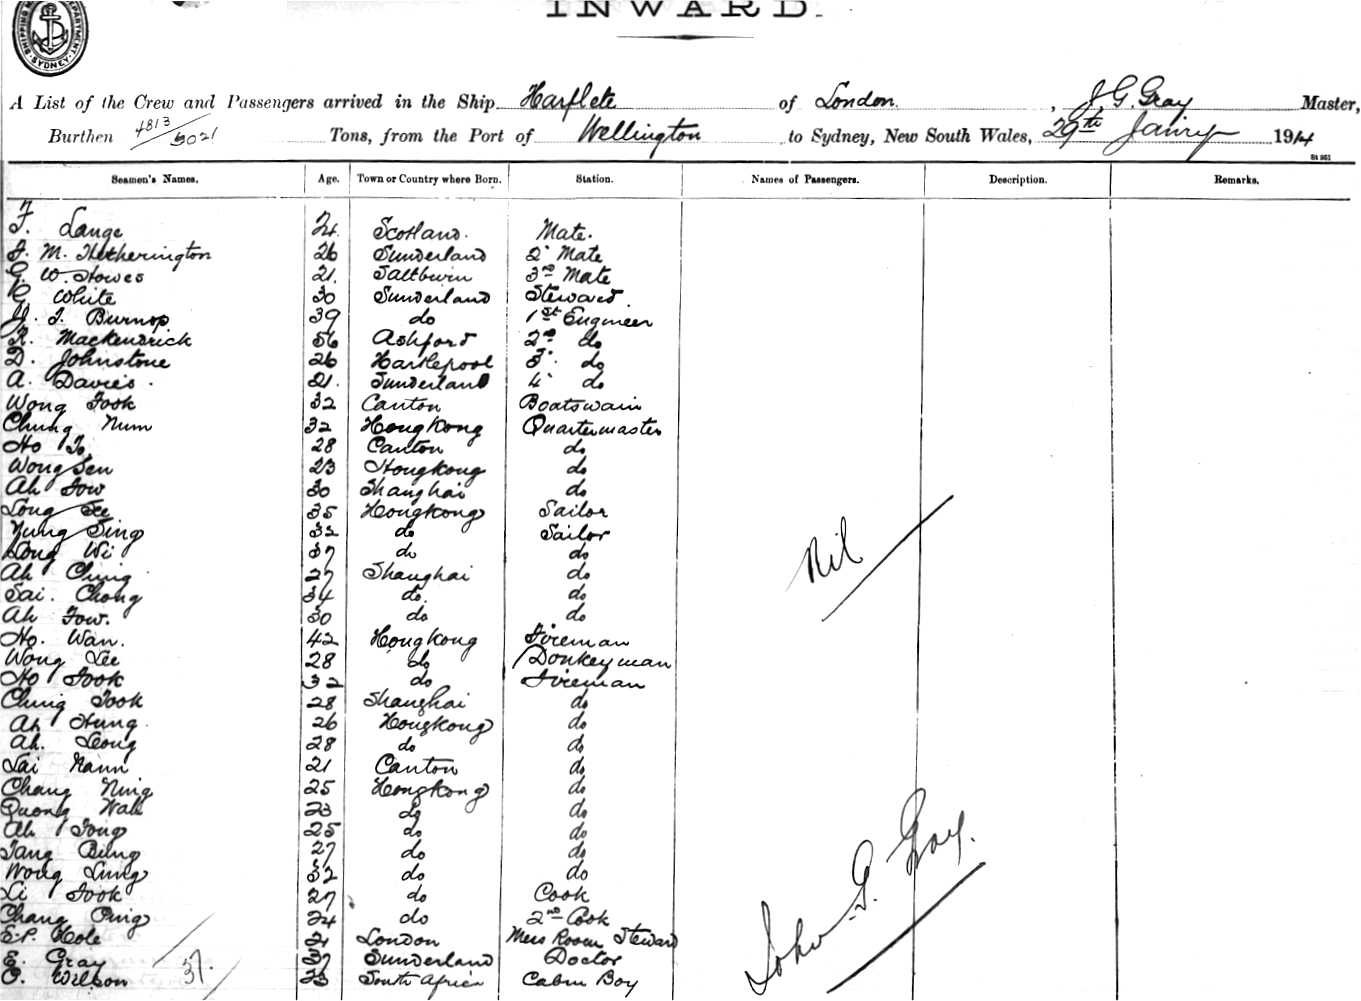 SHIPPING DEPARTMENT SYDNEY
INWARD.
A List of the Crew and Passengers arrived in the Ship Harflete of London, J. G. Gray Master,
Burthen 4813/3021 Tons, from the Port of Wellington to Sydney, New South Wales, 29th Janry 1914
St 951
Seamen's Names. Age. Town or Country where Born. Station. Names of Passengers. Description. Remarks.
F. Lange 24 Scotland. Mate.
J. M. Hetherington 26 Sunderland 2nd Mate
G. W. Howes 21. Saltburn 3rd Mate
White 30 Sunderland Steward
J. T. Burnop 39 do 1st Engineer
R. Mackendrick 56 Ashford 2nd do
D. Johnstone 26 Hartlepool 3. do
A. Davies. 21. Sunderland 4 do
Wong Fook 32 Canton Boatswain
Chung Num 32 Hongkong Quartermaster
Ho To 28 Canton do
Wong Sen 23 Hongkong do
Ah Fow 30 Shanghai do
Long See 35 Hongkong Sailor
Yung Sing 32 do Sailor
Long Wi 37 do do
Ah Ching 27 Shanghai do
Sai. Chong 34 do. do
Ah Fow. 30 do do
Ho. Wan. 42 Hongkong Fireman
Wong Lee 28 do Donkeyman
Ho Fook 32 do Fireman
Chung Fook 28 Shanghai do
Ah Hung 26 Hongkong do
Ah. Leong 28 do do
Lai Nann 21 Canton do
Chang Ning 25 Hongkong do
Quong Wah 23 do do
Ah Fong 25 do do
Tang Bing 27 do do
Wong Ling 32 do do
Li Fook 27 do Cook
Chang Ping 24 do 2nd Cook
S. P. Hole 21 London Mess Room Steward
E. Gray 37 Sunderland Doctor
Wilson 23 South Africa Cabin Boy
37.
Nil
John G. Gray.